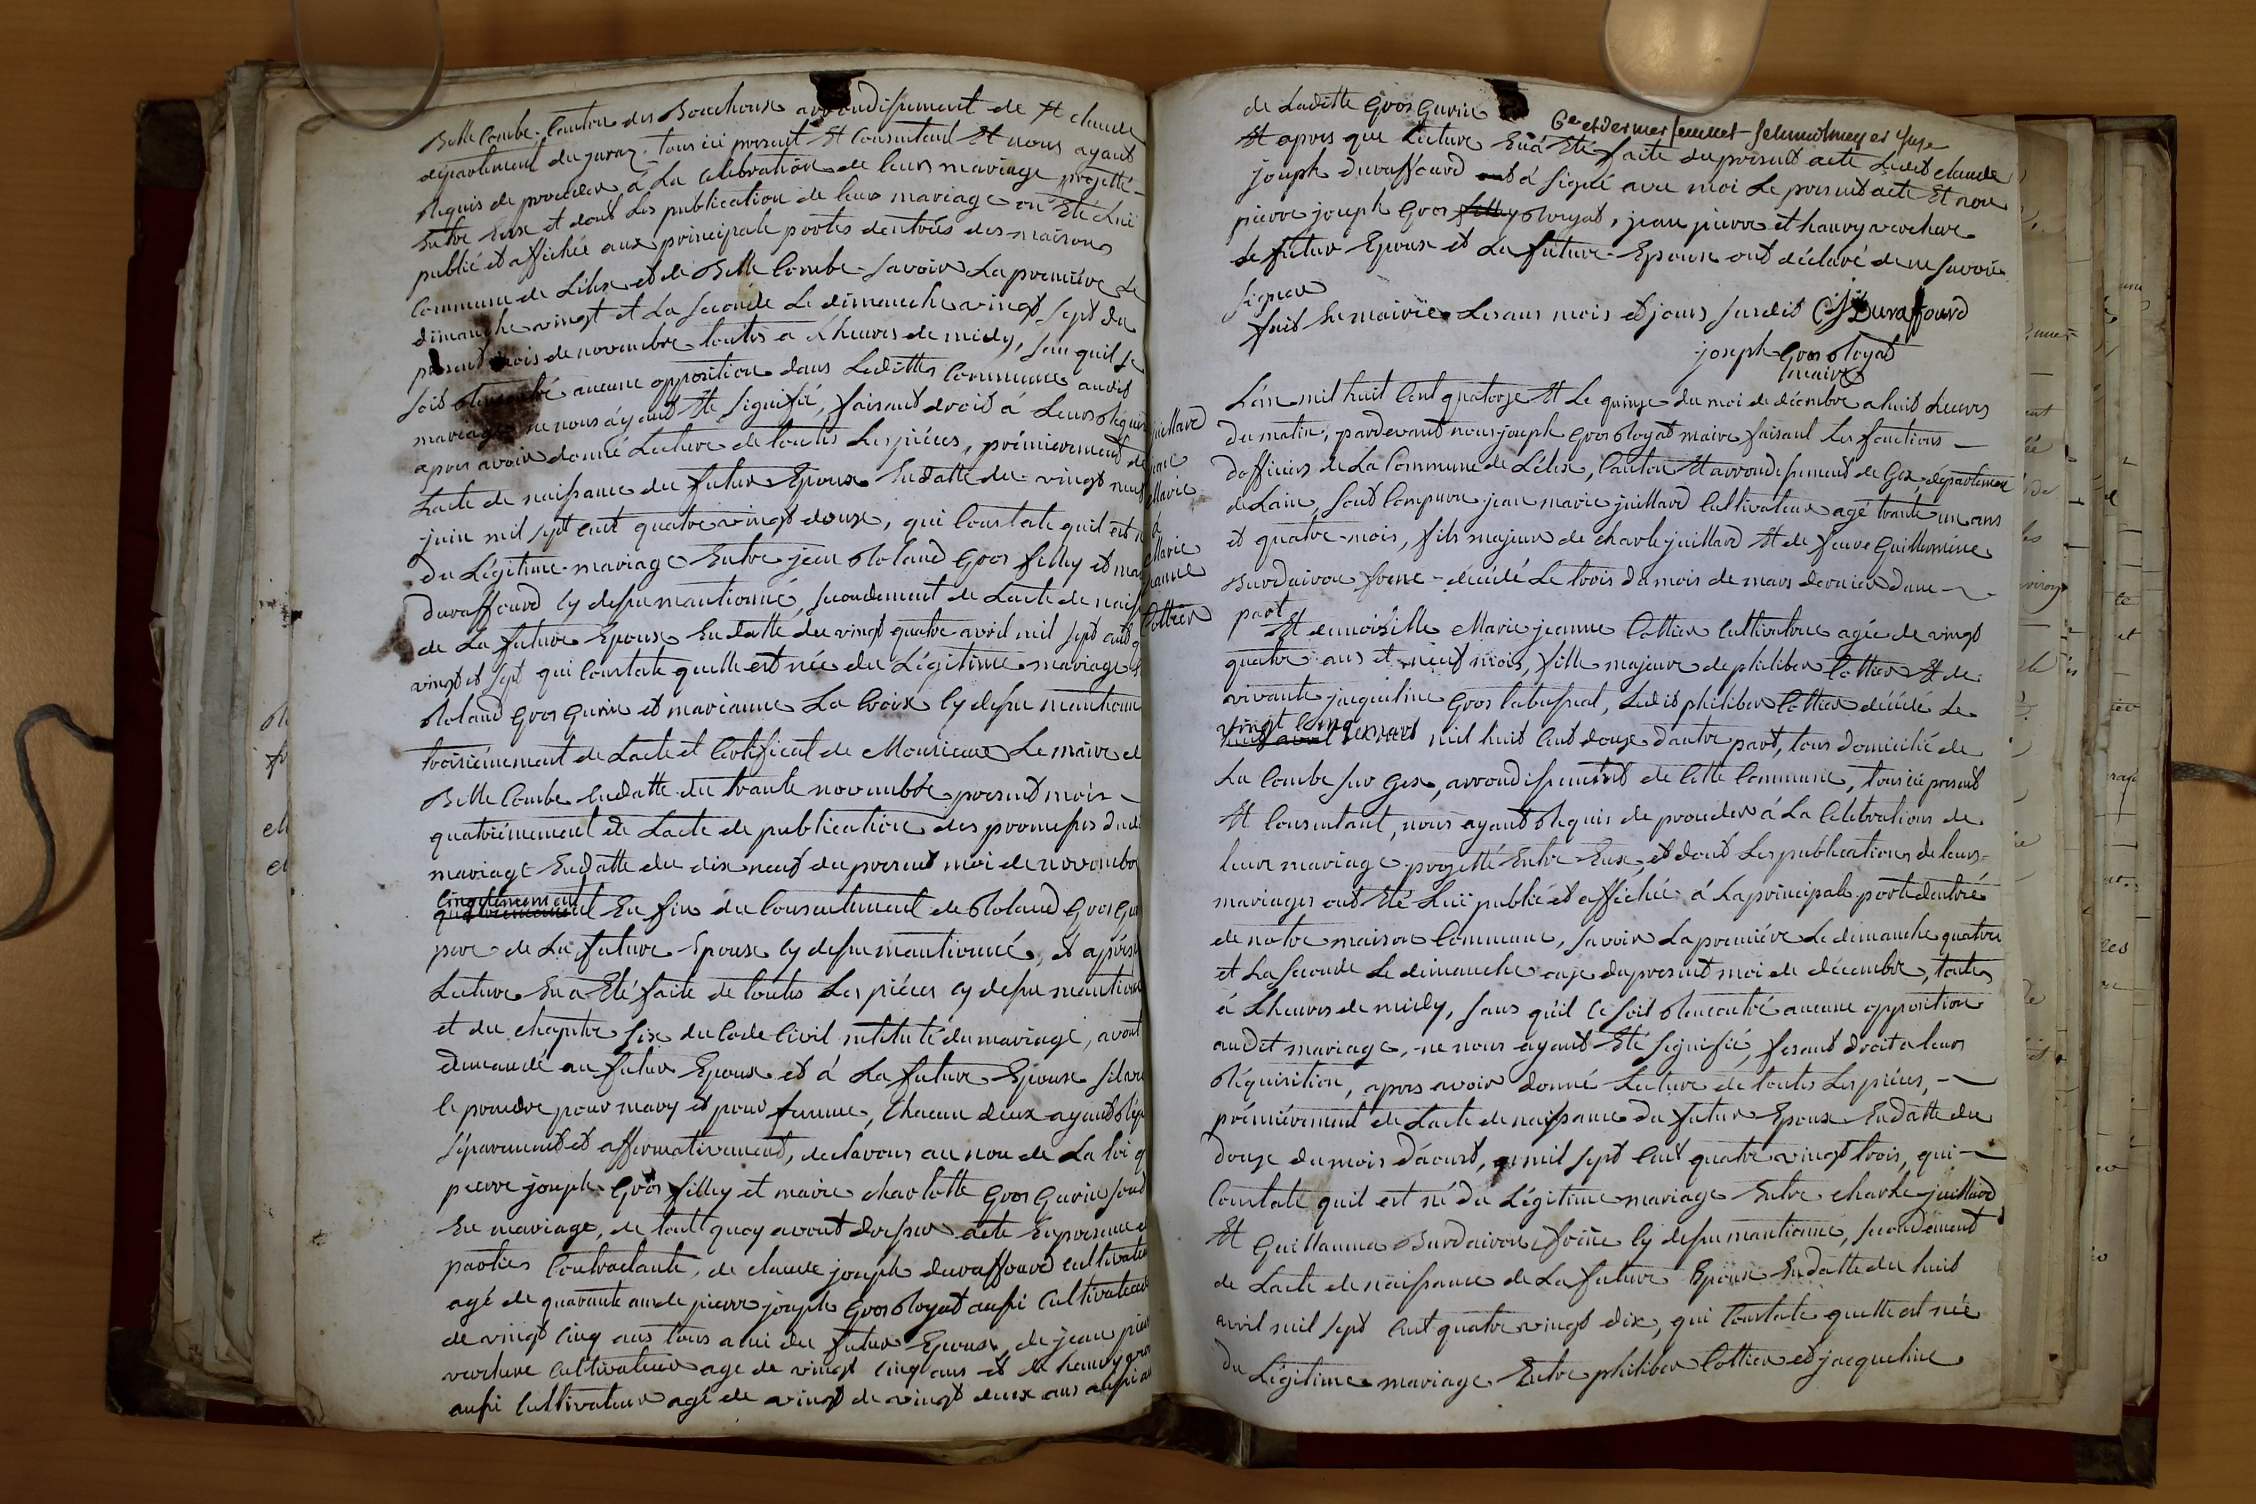 Belle Combe, Canton des Bouchoux arrondissement de St claude
département du juraz. tous ici present Et Consentant Et nous ayant
Requis de proceder á La celebration de leurs mariage projetté
Entre Eux et dont Les publication de leurs mariage on Eté Lui
publié et affichée aux principale portes dentrées des maisons
Commune de Lélex et de Belle Combe savoir La premiére Le
dimanche vingt et La seconde Le dimanche vingt sept du
present mois de novembre toutes a Lheures de midy, san quil se
soit Rencontré aucune opposition dans Ledittes Commune audit
mariage ne nous áyant Eté signifié, faisant droit á Leurs Réquis
apres avoir donné Lecture de toutes Les piéces, prémierement de
Lacte de naissance du futur Epoux En datte du vingt neuf
juin mil sept cent quatre vingt douze, qui Constate quil est n
du Légitime mariage Entre jean Roland Gros fillex et ma
duraffourd Cy dessu mantionné, secondement de Lacte de naiss
de La future Epouse En datte du vingt quatre avril mil sept cent q
vingt et sept qui Constate quelle est née du Légitime mariage
Roland Gros Gurin et marianne La Croix Cy dessu mentionn
troisiémement de Lacte et Certificat de Monsieur Le maire de
Belle Combe En datte du trante novembre present mois
quatriémement de Lacte de publication des promesses dud
mariage En datte du dix neuf du present moi de novembre
Cinquiemement
quatriemement En fin du Consentement de Roland Gros Gu
pere de La future Epouse Cy dessu mantionné, et aprés
Lecture En a Eté faite de toutes Les piéces Cy dessu mantion
et du chapitre six du Code Civil intitulé du mariage, avont
demandé au futur Epoux et á La future Epouse sil ve
se prendre pour mary et pour femme, Chacun deux ayant Rép
séparement et affirmativement, declarons au non de La loi q
pierre joseph Gros fillex et marie charlotte Gros Gurin sont
En mariage, de tout quoy avont dressé acte En presence d
parties Contractante, de claude joseph duraffourd cultivateur
agé de quarante ans de pierre joseph Gros Royat aussi Cultivateur
de vingt cinq ans tous a mi du futur Epoux, de jean pier
verchere Cultivateur age de vingt cinq ans et de henry
aussi Cultivateur agé de vingt de vingt deux ans aussi am
de Laditte Gros Gurin
6e et dernier feuillet
Et apres que Lecture En á Eté faite du present acte Ledit claude
joseph Duraffourd á signé avec moi Le present acte Et non
pierre joseph Gros Royat, jean pierre et hanry verchere
Le futur Epoux et La future Epouse ont déclaré de ne savoir
signer
fait En mairie Les ans mois et jours susdit CJ Duraffourd
joseph Gros Royat
maire
juillard
jean
Marie
&
Marie
jeanne
Cottier
L'an mil huit Cent quatorze Et Le quinze du moi de décembre a huit Lheures
du matin, pardevant nous joseph Gros Royat maire faisant Les fonctions
dofficiers de La Commune de Lélex, Canton Et arrondissement de Gex, département
de Lain, sont Comparu jean marie juillard Cultivateur agé trante un ans
et quatre mois, fils majeur de charle juillard Et de feue Guillermine
Burdairon foene décédé Le trois du mois de mars dernier dune
part
Et demoiselle Marie jeanne Cottier Cultivatrice agée de vingt
quatre ans et neuf mois, fille majeure de philiber Cottier Et de
vivante jacqueline Gros Cabussat, Ledit philiber Cottier décédé Le
vingt Cinq
mars mil huit Cent douze dautre part, tous domicilié de
La Combe sur Gex, arrondissement de Cette Commune, tous ici present
Et Consentant, nous ayant Requis de proceder á La Celebrations de
leur mariage projetté Entre Eux, et dont Les publications de leurs
mariages ont Eté Lui publié et affichée á La principale porte dentrée
de notre maison Commune, savoir La premiére Le dimanche quatre
et La seconde Le dimanche onze du present moi de décembre, toutes
á Lheures de midy, sans qu'il ce soit Rencontré aucune opposition
audit mariage, ne nous ayant Eté signifié, fesant droit a leurs
Réquisition, apres avoir donné Lecture de toutes Les piéces,
prémiérement de Lacte de naissance du futur Epoux En datte du
douze du mois d'aoust, mil sept Cent quatre vingt trois, qui
Constate quil est né du Légitime mariage Entre charle juillard
Et Guillauma Burdairon foéne Cy dessu mantionné, secondement
de Lacte de naissance de La future Epouse En datte du huit
avril mil sept Cent quatre vingt dix, qui Constate quelle est née
du Légitime mariage Entre philiber Cottier et jacqueline